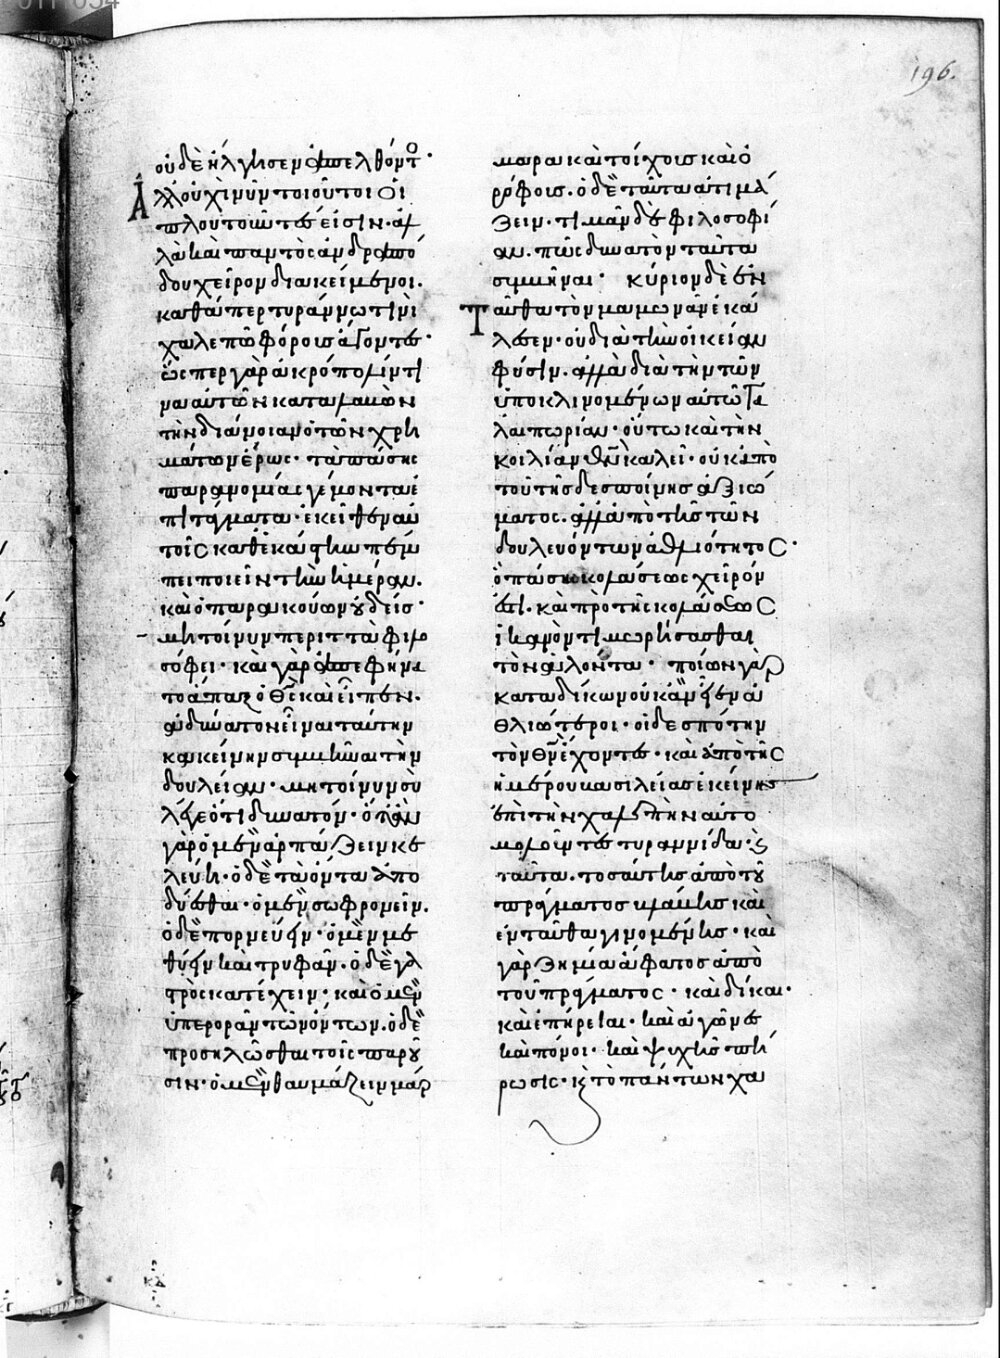 196.
οὐδὲ ἤλγησεν ἀπελθόντος·
Ἀλλ' οὐχὶ νῦν τοιοῦτοι οἱ
πλουτοῦντές εἰσιν· ἀλ
λὰ καὶ παντὸς ἀνδραπό
δου χεῖρον διακείμενοι.
καθάπερ τυράννω τινὶ
χαλεπῶ φόρους ἄγοντες·
ὥσπερ γὰρ ἀκρόπολίν τι
να αὐτῶν καταλαβὼν
τὴν διάνοιαν ὁ τῶν χρη
μάτων ἔρως· τὰ πάσης
παρανομίας γέμοντα ἐ
πιτάγματα ἐκεῖθεν αὐ
τοῖς καθ' ἑκάστην πέμ
πει ποιεῖν τὴν ἡμέραν.
καὶ ὁ παρακούων οὐδείς·
μὴ τοίνυν περιττὰ φιλο
σόφει· καὶ γὰρ ἀπεφήνα
το ἅπαξ ὁ θς καὶ εἶπεν.
ἀδύνατον εἶναι ταύτην
κἀκείνην συμβῆναι τὴν
δουλείαν· μὴ τοίνυν σὺ
λέγε ὅτι δυνατόν· ὅταν
γὰρ ὁ μὲν ἁρπάζειν κε
λεύη· ὁ δὲ τὰ ὄντα ἀπο
δύεσθαι· ὁ μὲν σωφρονεῖν.
ὁ δὲ πορνεύειν· ὁ μὲν με
θύειν καὶ τρυφᾶν· ὁ δὲ γα
τρὸς κατέχειν· καὶ ὁ μὲν
ὑπερορᾶν τῶν ὄντων. ὁ δὲ
προσηλῶσθαι τοῖς παροῦ
σιν· ὁ μὲν θαυμάζειν μάρ
μαρα καὶ τοίχους καὶ ὀ
ρόφους. ὁ δὲ ταῦτα ἀτιμά
ζειν. τιμᾶν δὲ φιλοσοφί
αν. πῶς δυνατὸν ταῦτα
συμβῆναι· κύριον δὲ ἐν
Ταῦθα τὸν μαμωνᾶν ἐκά
λεσεν· οὐ διὰ τὴν οἰκείαν
φύσιν. ἀλλὰ διὰ τὴν τῶν
ὑποκλινομένων αὐτῶ τα
λαιπωρίαν· οὕτω καὶ τὴν
κοιλίαν θν καλεῖ· οὐκ ἀπὸ
τοῦ τῆς δεσποίνης ἀξιώ
ματος. ἀλλ' ἀπὸ τῆς τῶν
δουλευόντων ἀθλιότητος·
ὃ πάσης κολάσεως χεῖρόν
ἐστι. καὶ πρὸ τῆς κολάσεως
ἱκανὸν τιμωρήσασθαι
τὸν ἁλόντα· ποίων γὰρ
καταδίκων οὐκ ἂν εἶεν ἀ
θλιώτεροι· οἱ δεσπότην
τὸν θν ἔχοντες· καὶ ἀπὸ τῆς
ἡμέρου βασιλείας ἐκείνης
ἐπὶ τὴν χαλεπὴν αὐτο
μολοῦντες τυραννίδα· καὶ
ταῦτα. τοσαύτης ἀπὸ τοῦ
πράγματος βλάβης καὶ
ἐνταῦθα γινομένης· καὶ
γὰρ ζημία ἄφατος ἀπὸ
τοῦ πράγματος· καὶ δίκαι·
καὶ ἐπήρειαι· καὶ ἀγῶνες
καὶ πόνοι· καὶ ψυχῆς πή
ρωσις· καὶ τὸ πάντων χα